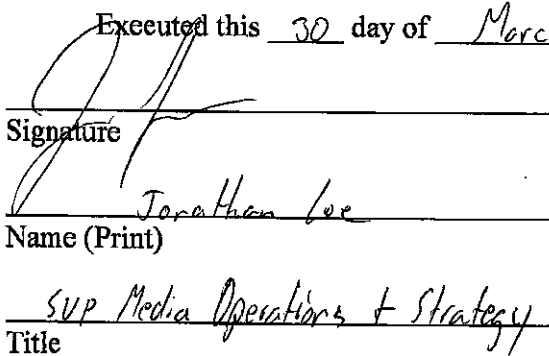 Executed this 30 day of Marc
Signature
Jonathan
Name (Print)
SVP Media Operations + Strategy
Title